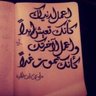 اعمل لدنياك
كأنك تعيش أبداً
واعمل لآخرتك
كأنك تموت غداً